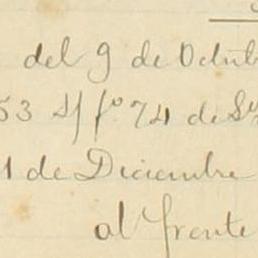 del 9 de Octub
53 S/ fº 74 de Su
1 de Diciembre
al frente